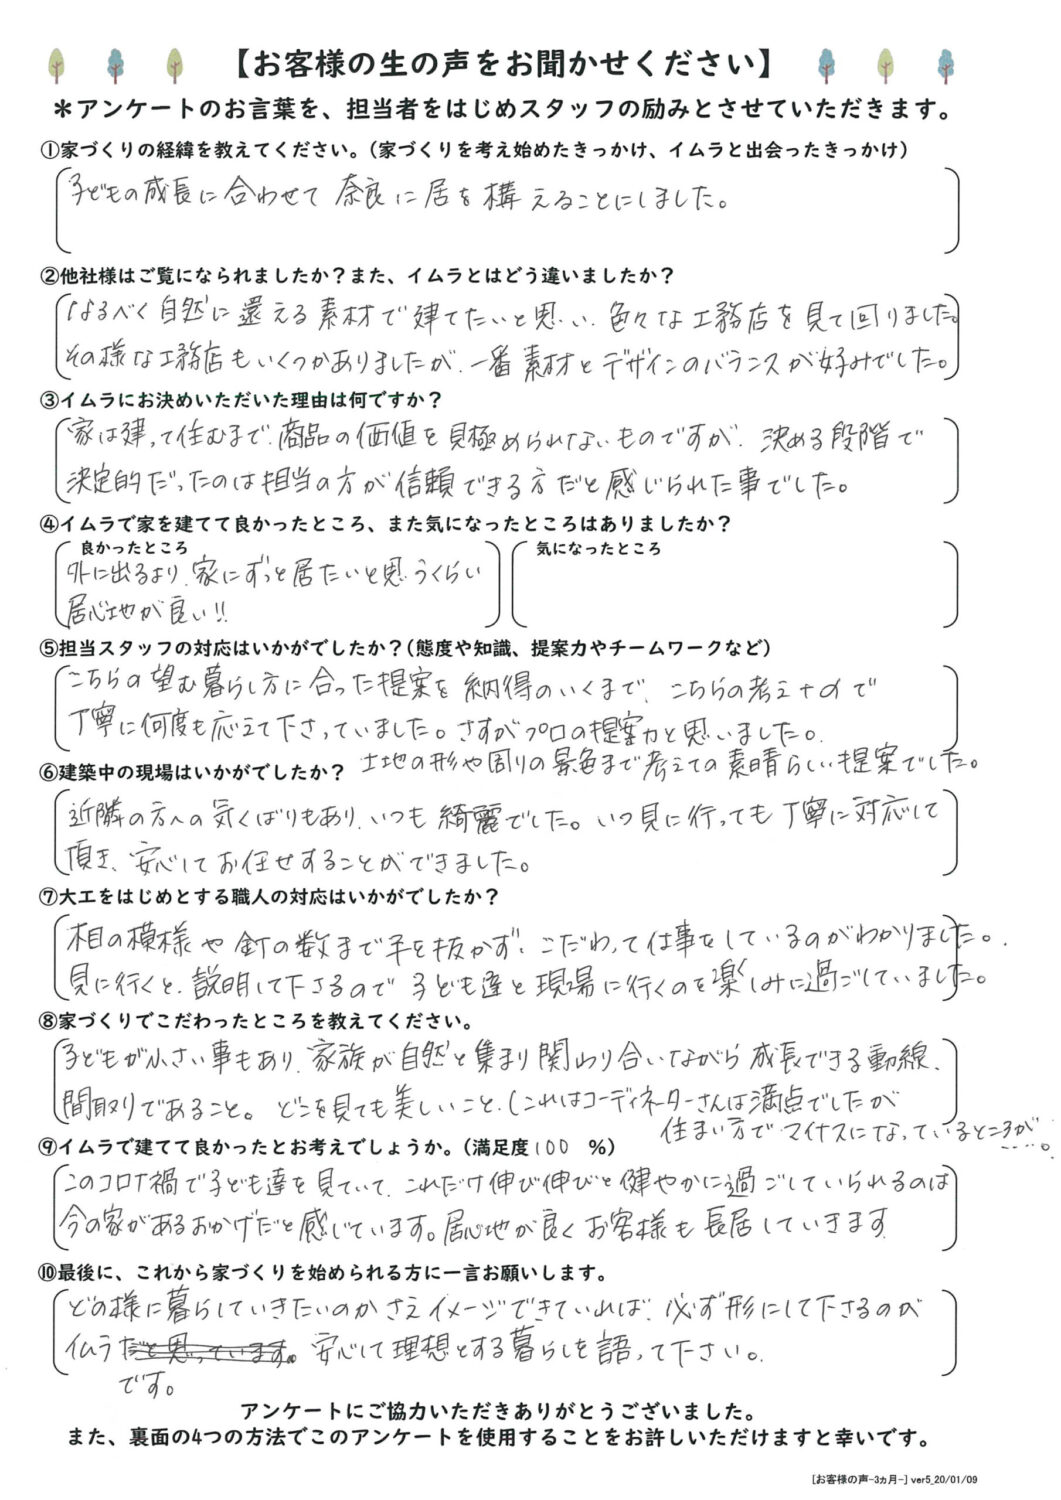 【お客様の生の声をお聞かせください】
＊アンケートのお言葉を、担当者をはじめスタッフの励みとさせていただきます。
①家づくりの経緯を教えてください。(家づくりを考え始めたきっかけ、イムラと出会ったきっかけ)
子どもの成長に合わせて奈良に居を構えることにしました。
②他社様はご覧になられましたか？また、イムラとはどう違いましたか？
なるべく自然に還える素材で建てたいと思い、色々な工務店を見て回りました。
その様な工務店もいくつかありましたが、一番素材とデザインのバランスが好みでした。
③イムラにお決めいただいた理由は何ですか？
家は建って住むまで、商品の価値を見極められないものですが、決める段階で
決定的だったのは担当の方が信頼できる方だと感じられた事でした。
④イムラで家を建てて良かったところ、また気になったところはありましたか？
良かったところ
気になったところ
外に出るより、家にずっと居たいと思うくらい
居心地が良い!!
⑤担当スタッフの対応はいかがでしたか？(態度や知識、提案力やチームワークなど)
こちらの望む暮らし方に合った提案を納得のいくまで、こちらの考え+αで
丁寧に何度も応えて下さっていました。さすがプロの提案力と思いました。
土地の形や周りの景色まで考えての素晴らしい提案でした。
⑥建築中の現場はいかがでしたか？
近隣の方への気くばりもあり、いつも綺麗でした。いつ見に行っても丁寧に対応して
頂き、安心してお任せすることができました。
⑦大工をはじめとする職人の対応はいかがでしたか？
木目の模様や釘の数まで手を抜かず、こだわって仕事をしているのがわかりました。
見に行くと、説明して下さるので子ども達と現場に行くのを楽しみに過ごしていました。
⑧家づくりでこだわったところを教えてください。
子どもが小さい事もあり、家族が自然と集まり関わり合いながら成長できる動線、
間取りであること。どこを見ても美しいこと、(これはコーディネーターさんは満点でしたが
住まい方でマイナスになっているところが……。
⑨イムラで建てて良かったとお考えでしょうか。(満足度100 %)
このコロナ禍で子ども達を見ていて、これだけ伸び伸びと健やかに過ごしていられるのは
今の家があるおかげだと感じています。居心地が良くお客様も長居していきます
⑩最後に、これから家づくりを始められる方に一言お願いします。
どの様に暮らしていきたいのかさえイメージできていれば、必ず形にして下さるのが
イムラだと思っています。安心して理想とする暮らしを語って下さい。
です。
アンケートにご協力いただきありがとうございました。
また、裏面の4つの方法でこのアンケートを使用することをお許しいただけますと幸いです。
[お客様の声-3ヵ月-] ver5_20/01/09